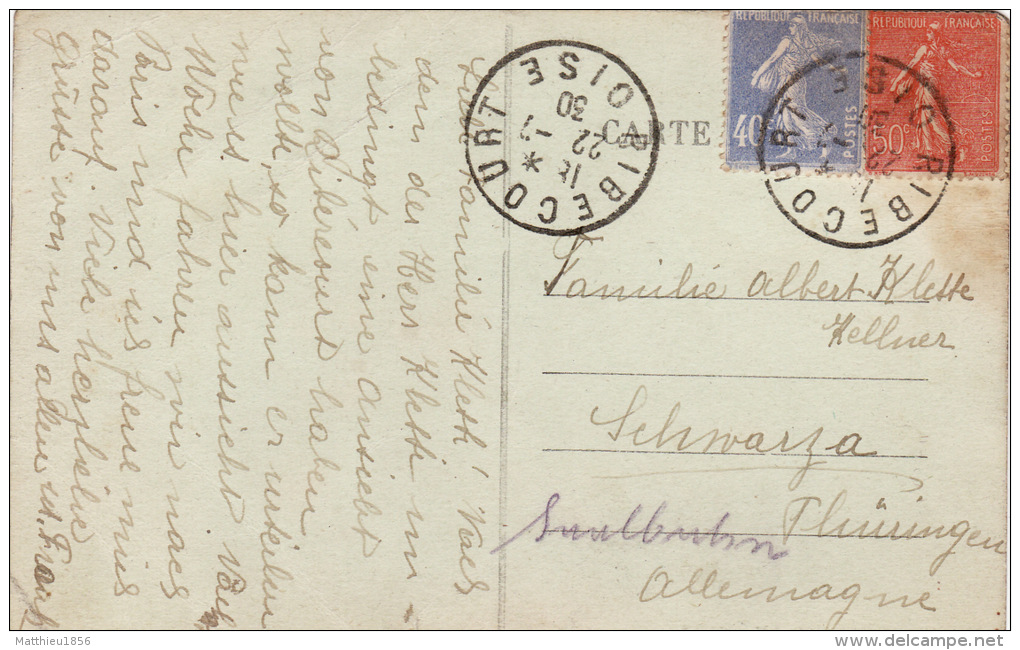 Liebe Familie Klett! Nach
dem der Herr Klette un
bedingt eine Ansicht
von Ribécourt haben
wollte, so kann er urteilen
wies hier aussieht.
Woche fahren wir nach
Paris und ich freue mich
darauf. Viele herzliche
Grüsse von uns allen
RIBECOURT
OISE
22 -7
30
CARTE
REPUBLIQUE FRANÇAISE
40
POSTES
REPUBLIQUE FRANÇAISE
50c
POSTES
RIBECOURT
OISE
Familie Albert Klette
Kellner
Schwarza
Saalbahn Thüringen
Allemagne
Matthieu1856
delcampe.net